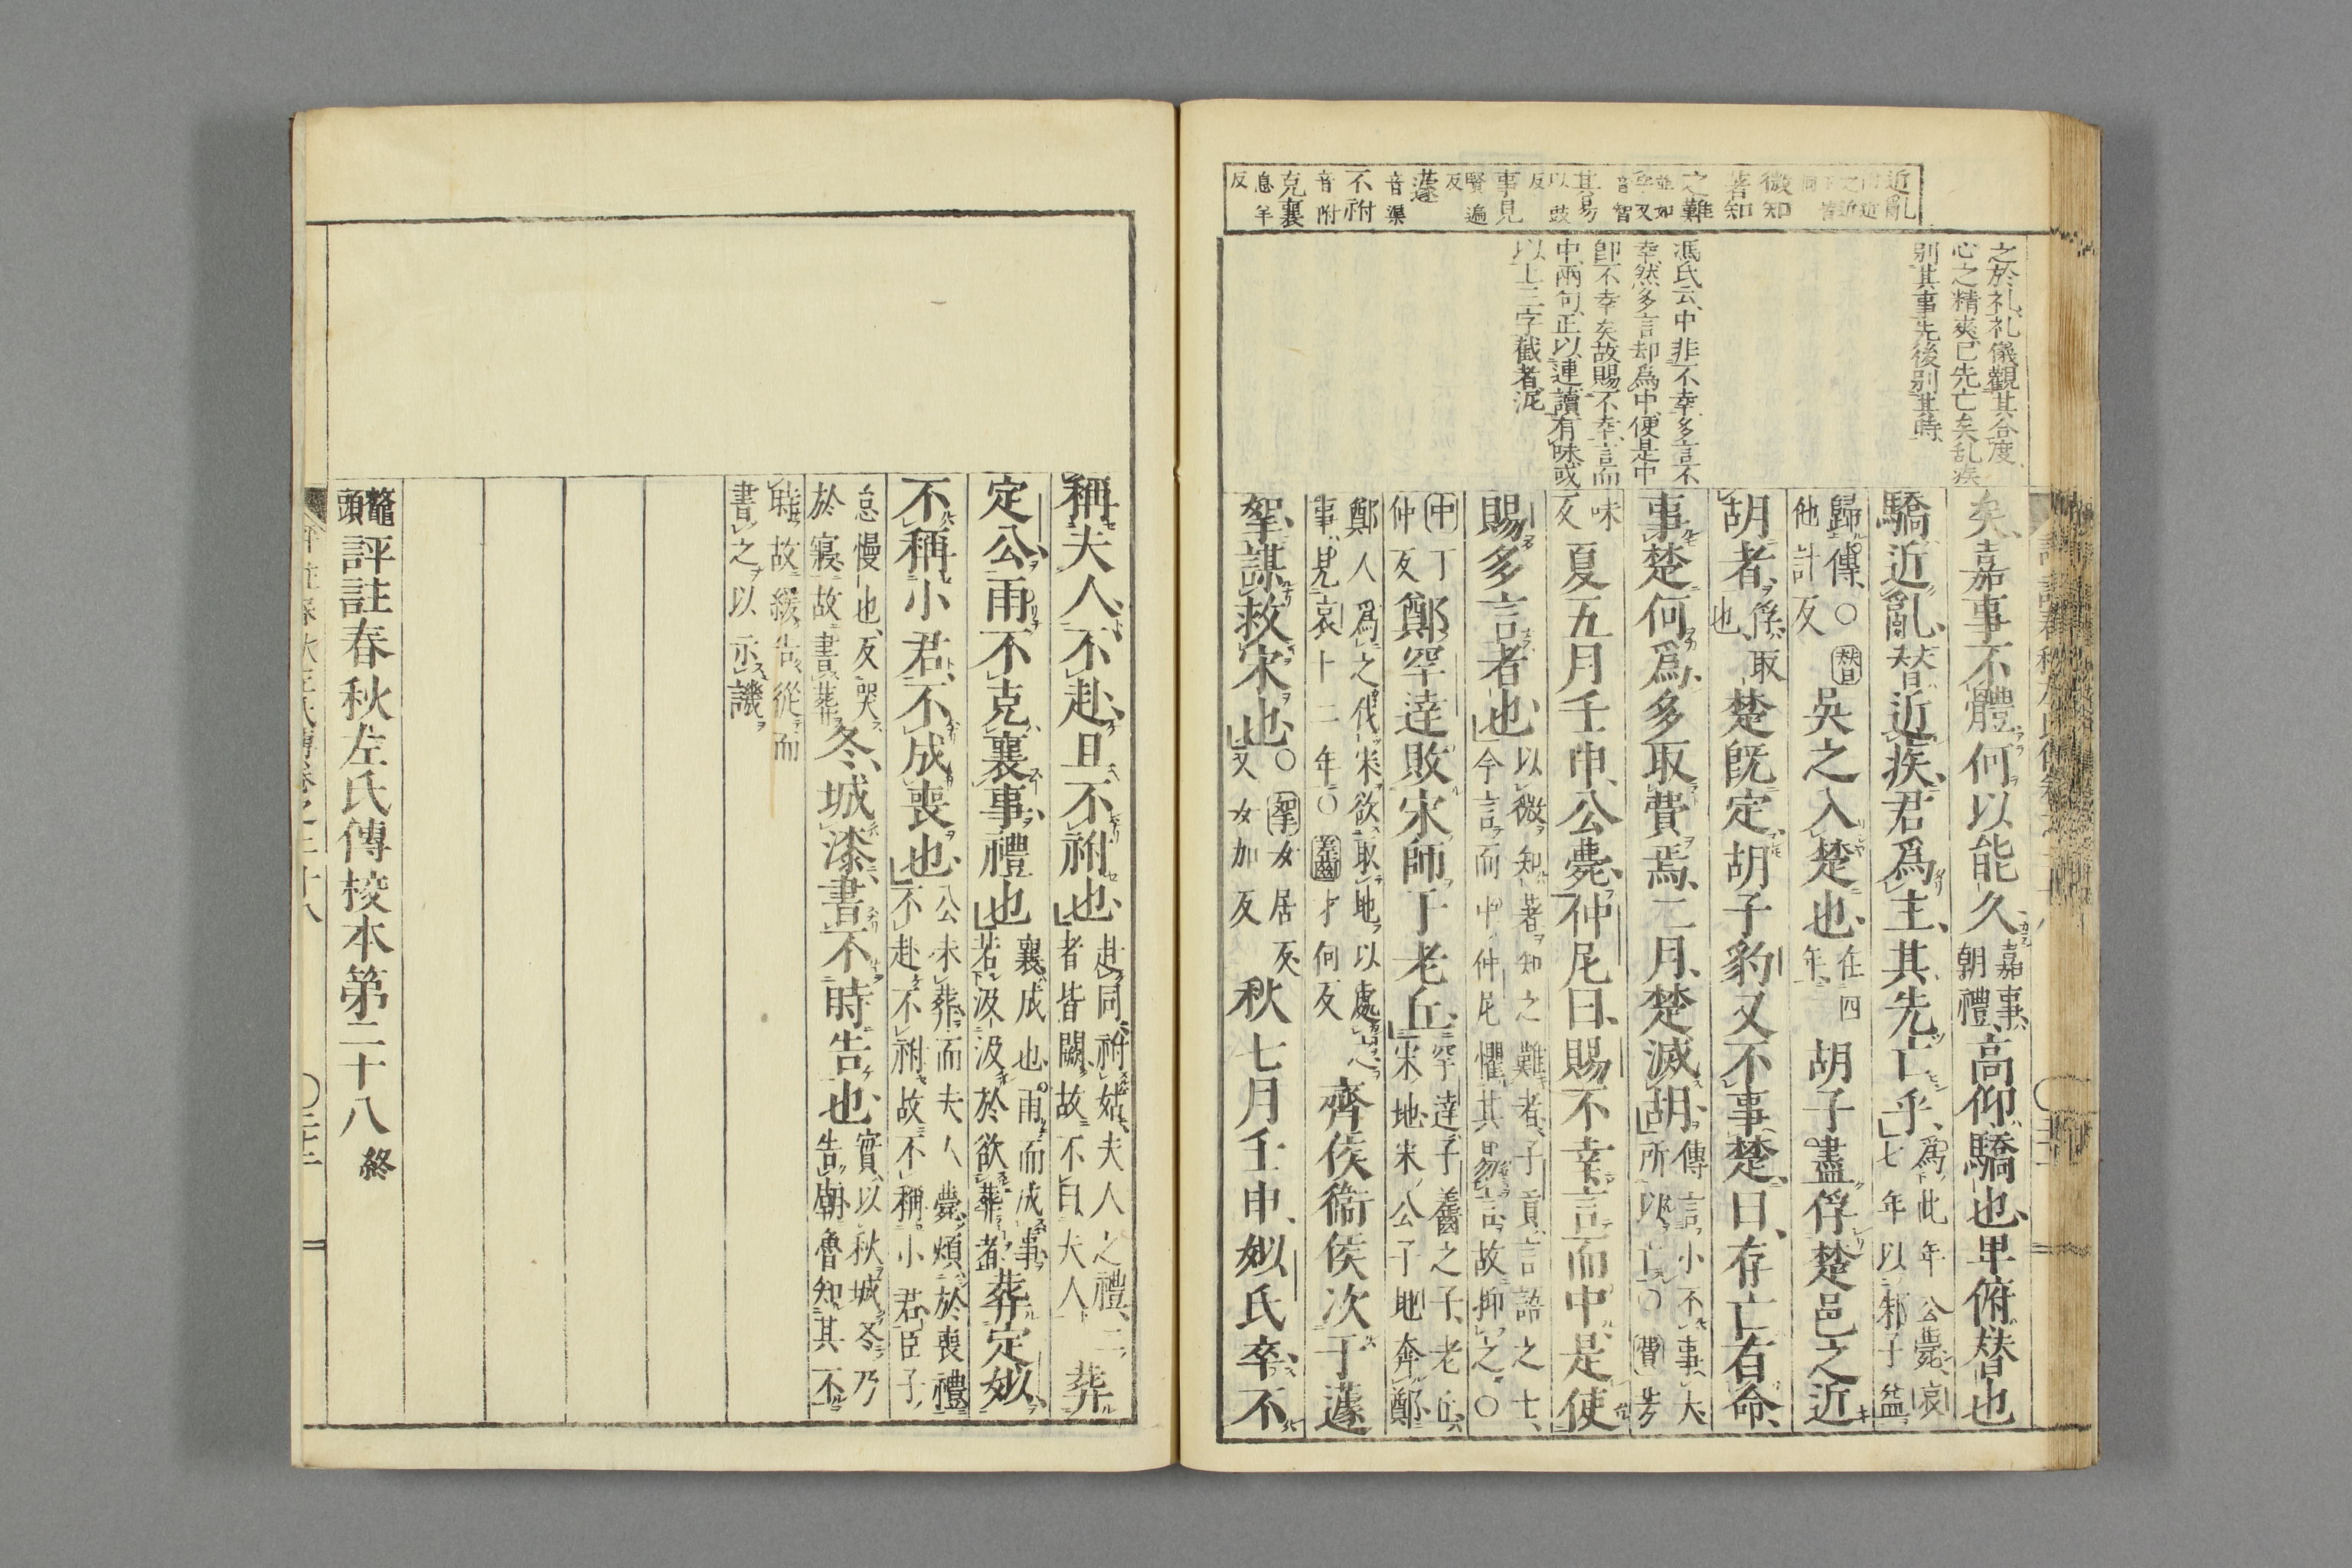 近亂
微知
著知
之難
其易
以豉
反
事見
賢遍
反
蘧
音渠
不祔
音附
克襄
息羊
反
之於礼礼儀觀其合度
心之精爽已先亡矣乱疾
别其事先後别其時
馮氏云中非不幸多言不
幸然多言却爲中便是中
卽不幸矣故賜不幸言而
中兩句正以連讀有味或
以上三字截者泥
矣嘉事不體何以能久嘉事朝禮高仰驕也卑俯替也
驕近亂替近疾君爲主其先亡乎爲此年公薨哀七年以邾子益
歸傳○替他計反吳之入楚也在四年胡子盡俘楚邑之近
胡者俘取也楚既定胡子豹又不事楚曰存亡有命
事楚何爲多取費焉二月楚滅胡傳言小不事大所以亡○費芳
味反夏五月壬申公薨仲尼曰賜不幸言而中是使
賜多言者也以微知著知之難者子貢言語之士今言而中仲尼懼其易言故抑之○
中丁仲反鄭罕達敗宋師于老丘罕達子齹之子老丘宋地宋公子地奔鄭
鄭人爲之伐宋欲取地以處之事見哀十二年○齹才何反齊侯衞侯次于蘧
挐謀救宋也○挐女居反又女加反秋七月壬申姒氏卒不
稱夫人不赴且不祔也赴同祔姑夫人之禮二者皆闕故不曰夫人葬
定公雨不克襄事禮也襄成也雨而成事若汲汲於欲葬者葬定姒
不稱小君不成喪也公未葬而夫人薨煩於喪禮不赴不祔故不稱小君臣子
怠慢也反哭於寢故書葬冬城漆書不時告也實以秋城冬乃告廟魯知其不
時故緩告從而
書之以示譏
鼇頭評註春秋左氏傳校本第二十八終